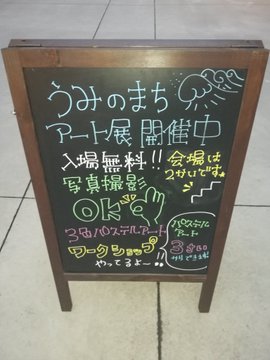 うみのまち
アート展 開催中
入場無料!! 会場は
2かいです。
写真撮影
OK
3色パステルアート
ワークショップ!!
やってるよ〜!!
パステル
アート
3さい
からできます!